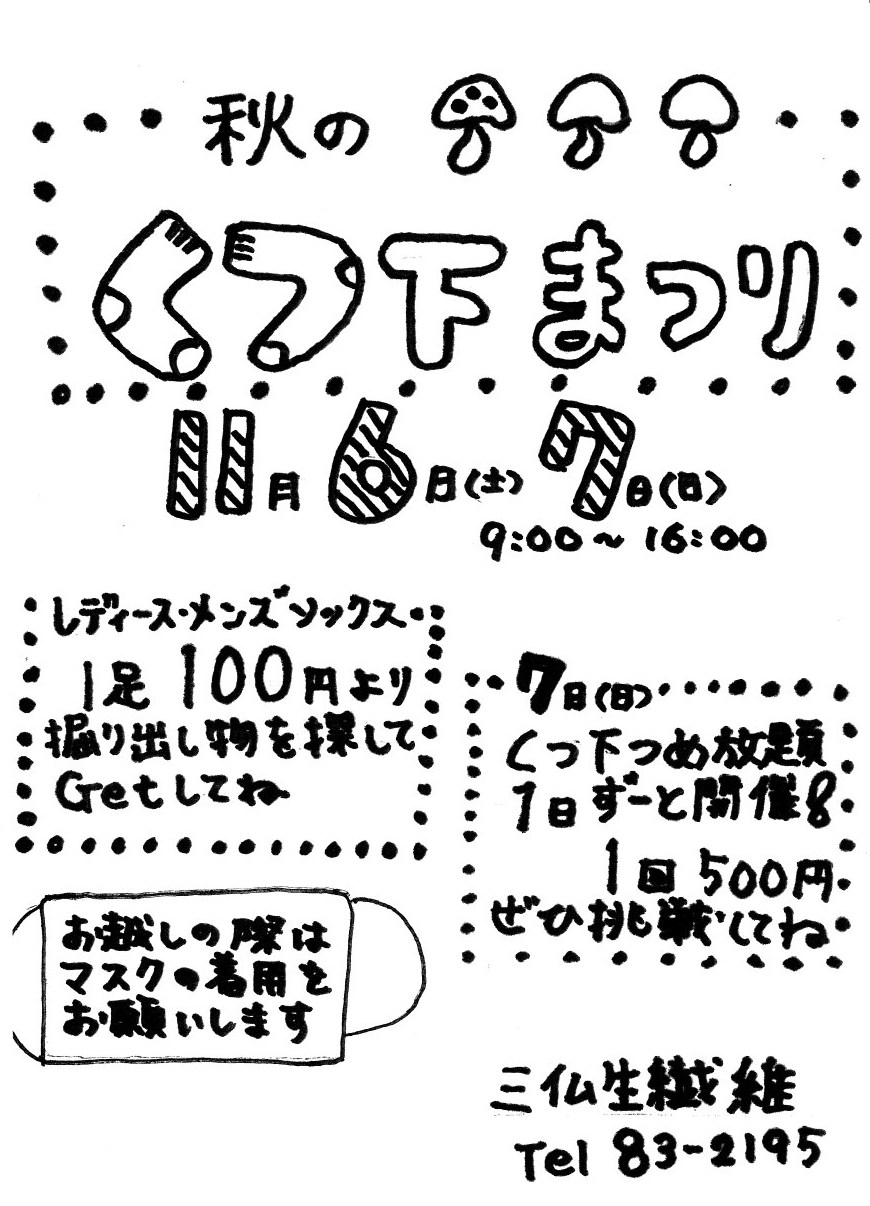 秋の
くつ下まつり
11月6日(土)7日(日)
9:00~16:00
レディース・メンズソックス
1足100円より
掘り出し物を探して
Getしてね
7日(日)
くつ下つめ放題
1日ずーと開催
1回500円
ぜひ挑戦してね
お越しの際は
マスクの着用を
お願いします
三仏生繊維
Tel 83-2195